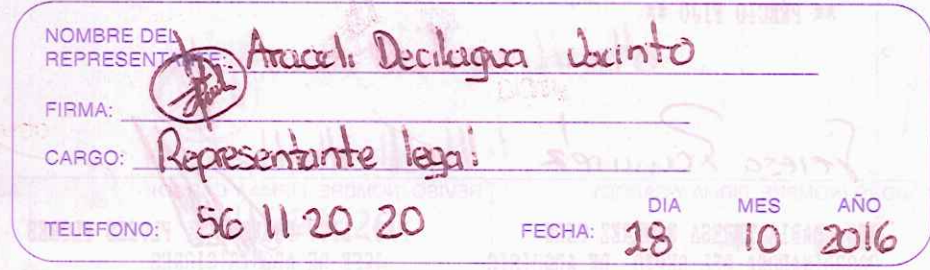 NOMBRE DEL
REPRESENTANTE: Araceli Decilagua Jacinto
FIRMA:
CARGO: Representante legal
TELEFONO: 56 11 20 20
FECHA: DIA MES AÑO
28 10 2016